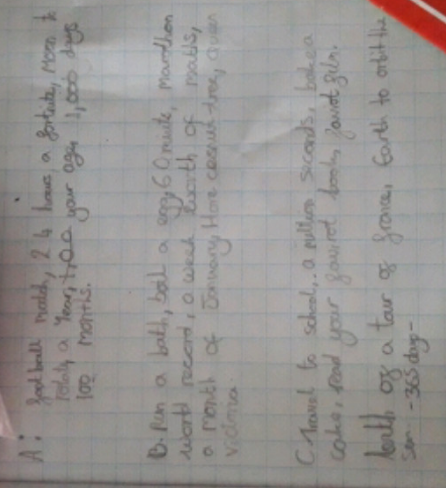 A: football match, 24 hours, a fortnite, moon to
rotate, a year, your age, 1,000 days
100 months.
B. Run a bath, boil a egg, 60 minute, marathon
world record, a week worth of maths,
a month of January, Hore coconut tree, queen
victoria.
C. Travel to school, a million seconds, bake a
cake, read your favirot book, favirot film.
length of a tour of france, Earth to orbit the
Sun - 365 days -